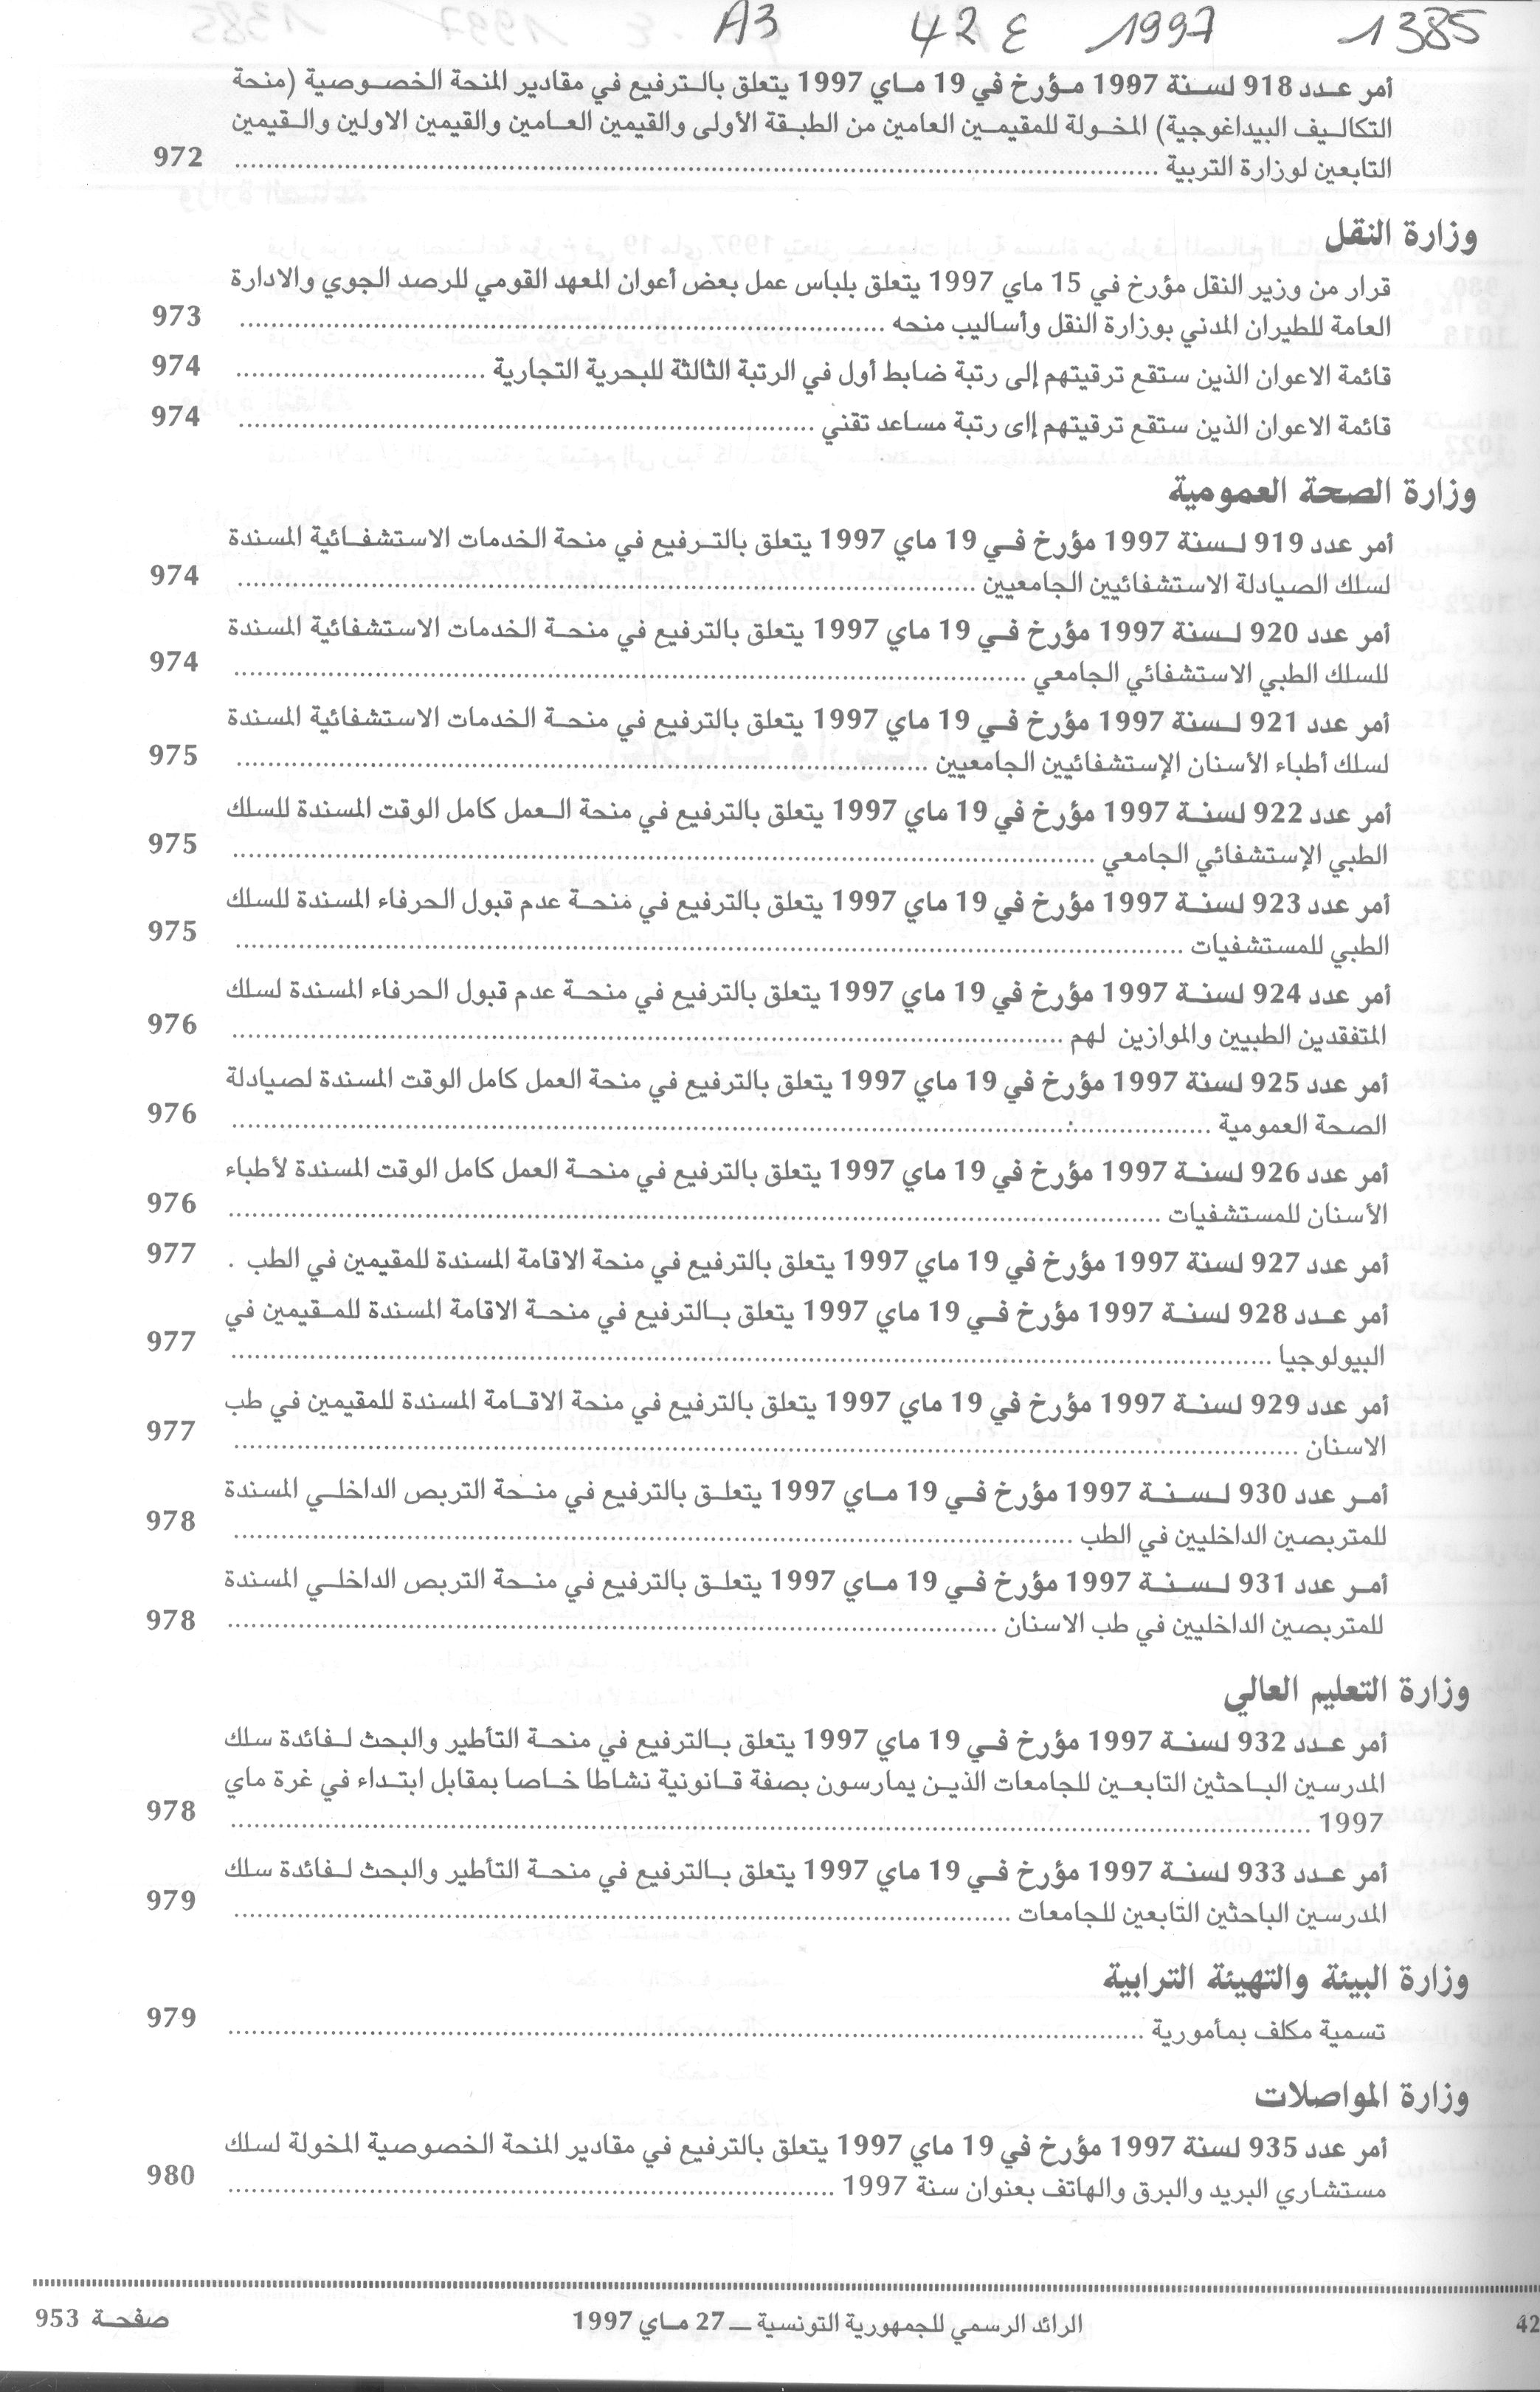 A3 42 ع 1997 1385
أمر عدد 918 لسنة 1997 مؤرخ في 19 ماي 1997 يتعلق بالترفيع في مقادير المنحة الخصوصية (منحة
التكاليف البيداغوجية) المخولة للمقيمين العامين من الطبقة الأولى والقيمين العامين والقيمين الاولين والقيمين
التابعين لوزارة التربية ........ 972
وزارة النقل
قرار من وزير النقل مؤرخ في 15 ماي 1997 يتعلق بلباس عمل بعض أعوان المعهد القومي للرصد الجوي والادارة
العامة للطيران المدني بوزارة النقل وأساليب منحه ........ 973
قائمة الاعوان الذين ستقع ترقيتهم إلى رتبة ضابط أول في الرتبة الثالثة للبحرية التجارية ........ 974
قائمة الاعوان الذين ستقع ترقيتهم إاى رتبة مساعد تقني ........ 974
وزارة الصحة العمومية
أمر عدد 919 لسنة 1997 مؤرخ في 19 ماي 1997 يتعلق بالترفيع في منحة الخدمات الاستشفائية المسندة
لسلك الصيادلة الاستشفائيين الجامعيين ........ 974
أمر عدد 920 لسنة 1997 مؤرخ في 19 ماي 1997 يتعلق بالترفيع في منحة الخدمات الاستشفائية المسندة
للسلك الطبي الاستشفائي الجامعي ........ 974
أمر عدد 921 لسنة 1997 مؤرخ في 19 ماي 1997 يتعلق بالترفيع في منحة الخدمات الاستشفائية المسندة
لسلك أطباء الأسنان الإستشفائيين الجامعيين ........ 975
أمر عدد 922 لسنة 1997 مؤرخ في 19 ماي 1997 يتعلق بالترفيع في منحة العمل كامل الوقت المسندة للسلك
الطبي الإستشفائي الجامعي ........ 975
أمر عدد 923 لسنة 1997 مؤرخ في 19 ماي 1997 يتعلق بالترفيع في منحة عدم قبول الحرفاء المسندة للسلك
الطبي للمستشفيات ........ 975
أمر عدد 924 لسنة 1997 مؤرخ في 19 ماي 1997 يتعلق بالترفيع في منحة عدم قبول الحرفاء المسندة لسلك
المتفقدين الطبيين والموازين لهم ........ 976
أمر عدد 925 لسنة 1997 مؤرخ في 19 ماي 1997 يتعلق بالترفيع في منحة العمل كامل الوقت المسندة لصيادلة
الصحة العمومية ........ 976
أمر عدد 926 لسنة 1997 مؤرخ في 19 ماي 1997 يتعلق بالترفيع في منحة العمل كامل الوقت المسندة لأطباء
الأسنان للمستشفيات ........ 976
أمر عدد 927 لسنة 1997 مؤرخ في 19 ماي 1997 يتعلق بالترفيع في منحة الاقامة المسندة للمقيمين في الطب . 977
أمر عدد 928 لسنة 1997 مؤرخ في 19 ماي 1997 يتعلق بالترفيع في منحة الاقامة المسندة للمقيمين في
البيولوجيا ........ 977
أمر عدد 929 لسنة 1997 مؤرخ في 19 ماي 1997 يتعلق بالترفيع في منحة الاقامة المسندة للمقيمين في طب
الاسنان ........ 977
أمر عدد 930 لسنة 1997 مؤرخ في 19 ماي 1997 يتعلق بالترفيع في منحة التربص الداخلي المسندة
للمتربصين الداخليين في الطب ........ 978
أمر عدد 931 لسنة 1997 مؤرخ في 19 ماي 1997 يتعلق بالترفيع في منحة التربص الداخلي المسندة
للمتربصين الداخليين في طب الاسنان ........ 978
وزارة التعليم العالي
أمر عدد 932 لسنة 1997 مؤرخ في 19 ماي 1997 يتعلق بالترفيع في منحة التأطير والبحث لفائدة سلك
المدرسين الباحثين التابعين للجامعات الذين يمارسون بصفة قانونية نشاطا خاصا بمقابل ابتداء في غرة ماي
1997 ........ 978
أمر عدد 933 لسنة 1997 مؤرخ في 19 ماي 1997 يتعلق بالترفيع في منحة التأطير والبحث لفائدة سلك
المدرسين الباحثين التابعين للجامعات ........ 979
وزارة البيئة والتهيئة الترابية
تسمية مكلف بمأمورية ........ 979
وزارة المواصلات
أمر عدد 935 لسنة 1997 مؤرخ في 19 ماي 1997 يتعلق بالترفيع في مقادير المنحة الخصوصية المخولة لسلك
مستشاري البريد والبرق والهاتف بعنوان سنة 1997 ........ 980
42 الرائد الرسمي للجمهورية التونسية ـ 27 ماي 1997 صفحة 953